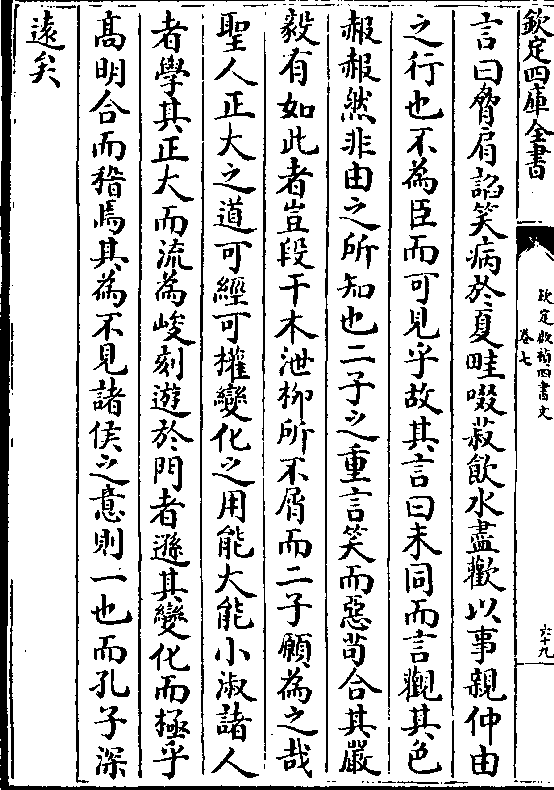 欽定四庫全書
欽定啟禎四書文
卷七
六十九
言曰脅肩諂笑病於夏畦啜菽飲水盡歡以事親仲由
之行也不為臣而可見乎故其言曰未同而言觀其色
赧赧然非由之所知也二子之重言笑而惡苟合其嚴
毅有如此者豈段干木泄柳所不屑而二子願為之哉
聖人正大之道可經可權變化之用能大能小淑諸人
者學其正大而流為峻刻遊於門者遜其變化而極乎
高明合而稽焉其為不見諸侯之意則一也而孔子深
遠矣